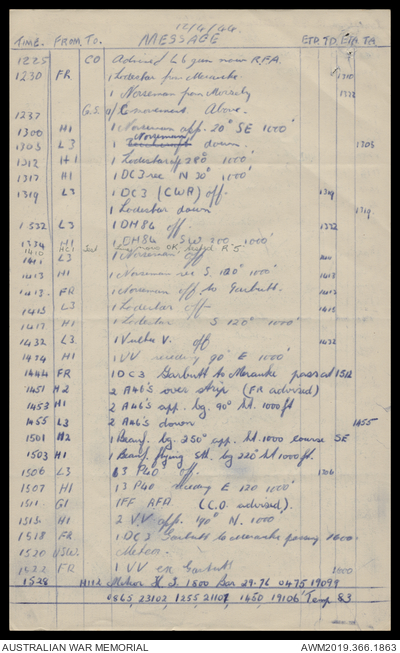 12/4/44
TIME. FROM. TO. MESSAGE ETA. TD. ETA. TA.
1225 CO Advised L6 gun now R.F.A.
1230 FR 1 Lodestar for Merauke 1310
1 Norseman from Moresby 1332
1237 G.S. movement. Above.
1300 H1 1 Norseman app. 20° SE 1000'
1305 L3 1 Norseman down. 1305
1312 H1 1 Lodestar 280° 1000'
1317 H1 1 DC3 rec N 30° 1000'
1319 L3 1 DC3 (CWA) off. 1319
1 Lodestar down 1319
1332 L3 1 DH84 off. 1332
1334 H1 1 DH84 SW 1000'
1410
1411 L3 1 Norseman off
1413 H1 1 Norseman rec S. 120° 1000'
1413 FR 1 Norseman off to Garbutt. 1413
1415 L3 1 Lodestar off 1415
1417 H1 1 Lodestar S 120° 1000'
1432 L3 1 Vultee V. off 1432
1434 H1 1 VV receding 90° E 1000'
1444 FR 1 DC3 Garbutt to Merauke pass at 1512
1451 H2 2 A46's over strip (FR advised)
1453 H1 2 A46's app. bg. 90° ht. 1000ft
1455 L3 2 A46's down 1455
1501 H2 1 Beauf. bg. 250° app. ht. 1000 course SE
1503 H1 1 Beauf. flying Sth. bg 220° ht. 1000ft.
1506 L3 13 P40 off. 1506
1507 H1 13 P40 receding E 120 1000'
1511 G1 IFF AFA (C.O. advised).
1515 H1 2 VV app. 40° N. 1000'
1518 FR 1 DC3 Garbutt to Merauke passing 1600
1520 Meteor.
1522 FR 1 VV ex Garbutt 1600
1528 H112 Meteor 1500 Bar 29.76 0475 19099
0865, 23102, 1255 21107, 1650 19106 Temp 83
AUSTRALIAN WAR MEMORIAL AWM2019.366.1863